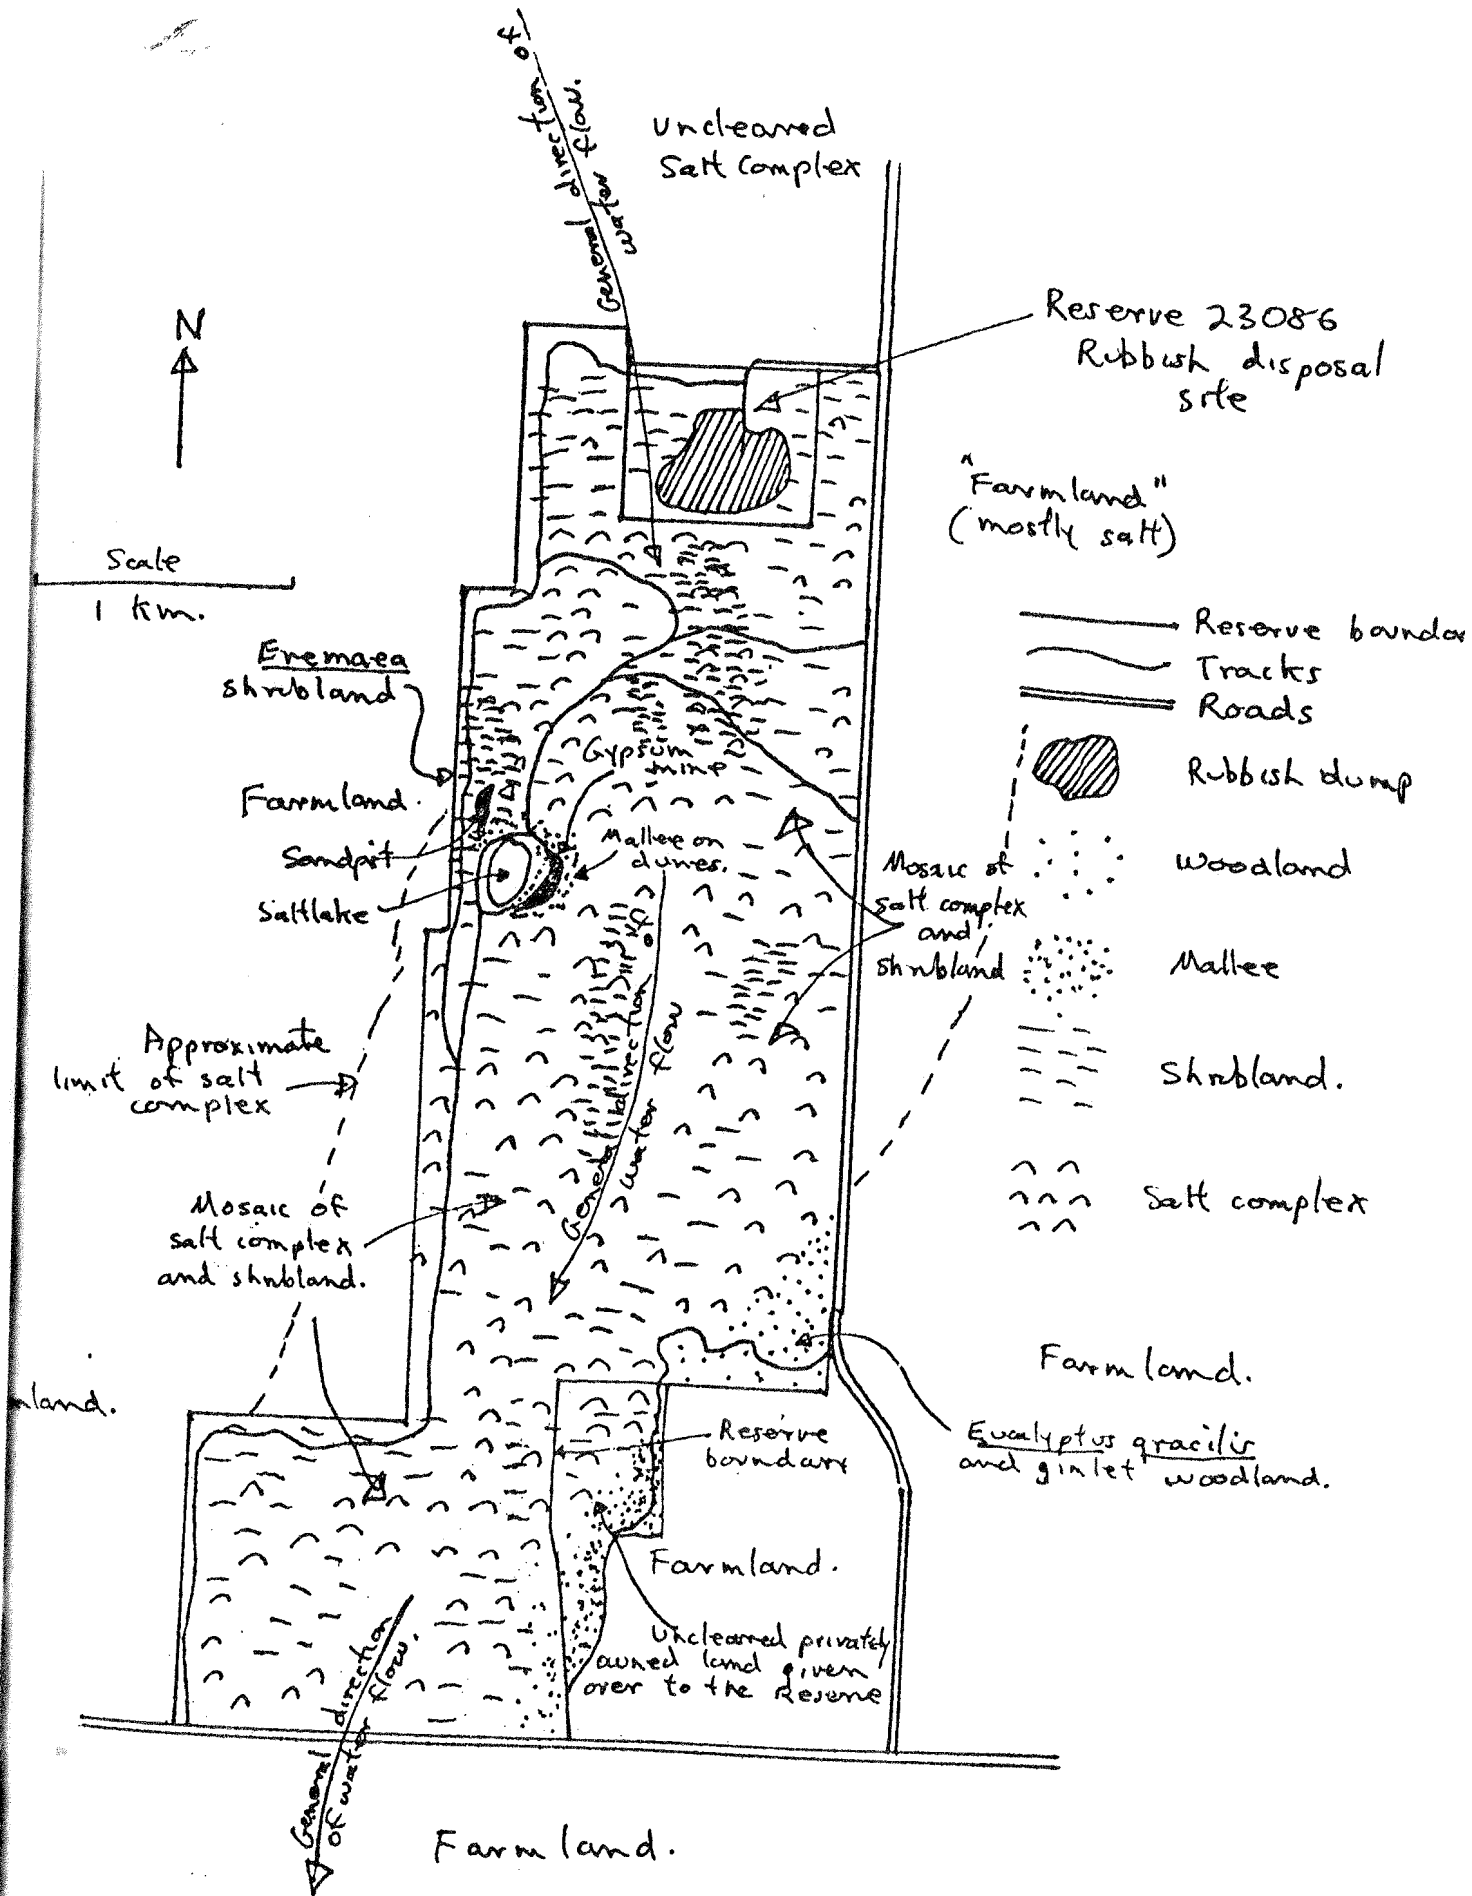 General direction of
water flow.
Uncleared
Salt Complex
N
Reserve 23086
Rubbish disposal
site
"Farmland"
(mostly salt)
Scale
1 km.
Reserve boundar
Tracks
Roads
Rubbish dump
Woodland
Mallee
Shrubland.
Salt complex
Eremaea
shrubland
Farmland.
Sandpit
Saltlake
Gypsum
mine
Mallee on
dunes.
Mosaic of
salt complex
and
shrubland
General direction of
water flow
Approximate
limit of salt
complex
Mosaic of
salt complex
and shrubland.
nland.
Farmland.
Eucalyptus gracilis
and gimlet woodland.
Reserve
boundary
Farmland.
Uncleared privately
owned land given
over to the Reserve
General direction
of water flow.
Farmland.